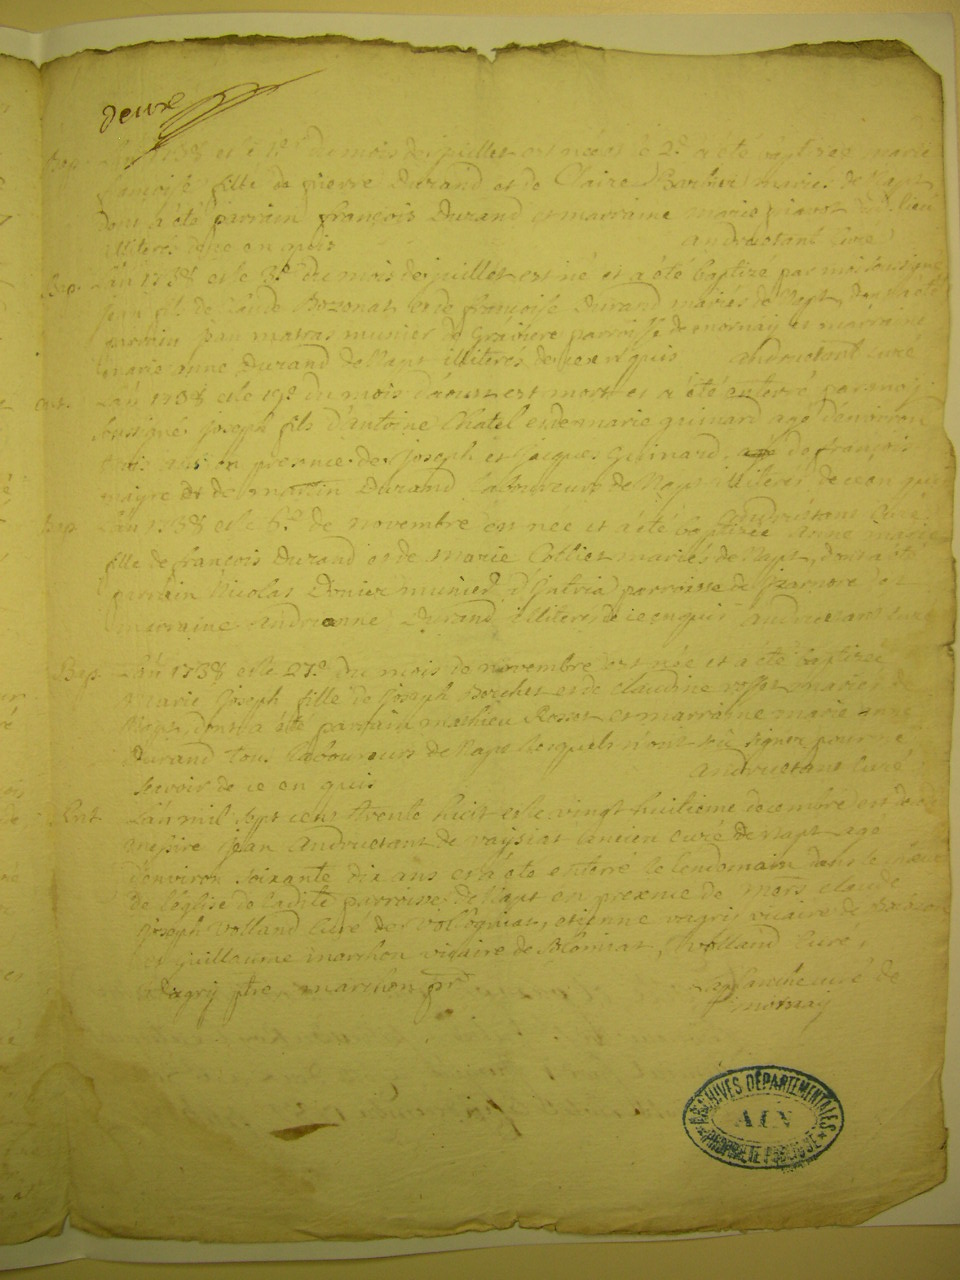 deux
Bap. L'an 1738 et le 1er du mois de juillet est née et le 2e a été baptisée marie
françoise fille de pierre Durand et de Claire Barbier mariés de Napt
dont a été parrain françois Durand et marraine marie du lieu
illiterés de ce enquis andructant curé
Bap. L'an 1738 et le 3e du mois de juillet est né et a été baptizé par moi soussigné
jean fils de Claude Bozonat et de françoise Durand mariés de Napt, dont a été
parrain jean matras munier de Gravière parroisse de mornay et marraine
marie anne Durand de Napt illiterés de ce enquis andructant curé
L'an 1738 et le 19e du mois d'aoust est mort et a été enterré par moy
soussigné joseph fils d'antoine Chatel et de marie guinard agé d'environ
trois ans en presence de joseph et jacques Guinard, de françois
mayre et de martin Durand laboureurs de Napt illiterés de ce enquis
andructant curé
Bap. L'an 1738 et le 6e de novembre est née et a été baptisée anne marie
fille de françois Durand et de marie Collet mariés de Napt, dont a été
parrain Nicolas Donier munier d' parroisse de izarnore et
marraine andrianne Durand illiterés de ce enquis andructant curé
Bap. L'an 1738 et le 27e du mois de novembre est née et a été baptizée
Marie joseph fille de joseph Bochet et de claudine rosset mariés de
Napt, dont a été parrain mathieu Rosset et marraine marie anne
Durand tous laboureurs de Napt lesquels n'ont sû signer pour ne
scavoir de ce enquis andructant curé
Ent. L'an mil sept cens trente huit et le vingt huitieme decembre est decedé
messire jean andructant de vaysiat ancien curé de Napt agé
d'environ soixante dix ans et a été enterré le lendemain dans le chœur
de l'église de ladite parroisse de Napt en presence de mrs claude
joseph volland curé de volognat, etienne vagris vicaire de
et guillaume marchon viquaire de Solomiat, volland curé,
vagrij ptre marchon ptr curé de
mornay
ARCHIVES DÉPARTEMENTALES
AIN
PROPRIÉTÉ PUBLIQUE